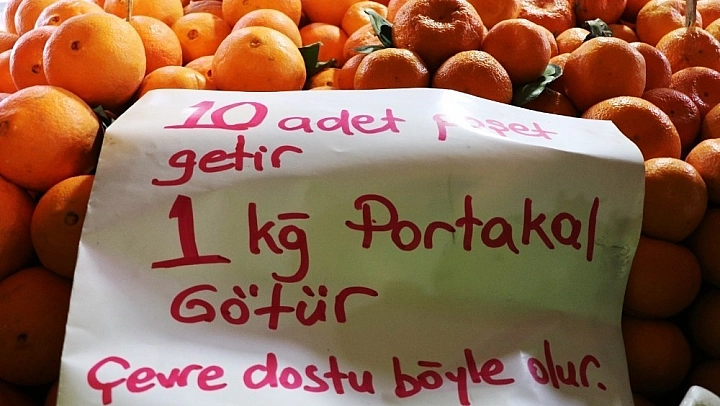 10 adet poşet
getir
1 kğ Portakal
Götür
Çevre dostu böyle olur.